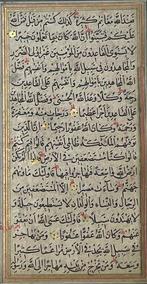 فَعِنْدَ اللَّهِ مَغَانِمُ كَثِيرَةٌ كَذَلِكَ كُنْتُمْ مِنْ قَبْلُ فَمَنَّ اللَّهُ
عَلَيْكُمْ فَتَبَيَّنُوا إِنَّ اللَّهَ كَانَ بِمَا تَعْمَلُونَ خَبِيرًا
لَا يَسْتَوِي الْقَاعِدُونَ مِنَ الْمُؤْمِنِينَ غَيْرُ أُولِي الضَّرَرِ
وَالْمُجَاهِدُونَ فِي سَبِيلِ اللَّهِ بِأَمْوَالِهِمْ وَأَنْفُسِهِمْ فَضَّلَ
اللَّهُ الْمُجَاهِدِينَ بِأَمْوَالِهِمْ وَأَنْفُسِهِمْ عَلَى الْقَاعِدِينَ
دَرَجَةً وَكُلًّا وَعَدَ اللَّهُ الْحُسْنَى وَفَضَّلَ اللَّهُ الْمُجَاهِدِينَ
عَلَى الْقَاعِدِينَ أَجْرًا عَظِيمًا دَرَجَاتٍ مِنْهُ وَمَغْفِرَةً
وَرَحْمَةً وَكَانَ اللَّهُ غَفُورًا رَحِيمًا إِنَّ الَّذِينَ
تَوَفَّيهُمُ الْمَلَئِكَةُ ظَالِمِي أَنْفُسِهِمْ قَالُوا فِيمَ كُنْتُمْ
قَالُوا كُنَّا مُسْتَضْعَفِينَ فِي الْأَرْضِ قَالُوا أَلَمْ تَكُنْ
أَرْضُ اللَّهِ وَاسِعَةً فَتُهَاجِرُوا فِيهَا فَأُولَئِكَ مَأْوَيهُمْ
جَهَنَّمُ وَسَاءَتْ مَصِيرًا إِلَّا الْمُسْتَضْعَفِينَ مِنَ
الرِّجَالِ وَالنِّسَاءِ وَالْوِلْدَانِ لَا يَسْتَطِيعُونَ حِيلَةً وَلَا
يَهْتَدُونَ سَبِيلًا فَأُولَئِكَ عَسَى اللَّهُ أَنْ يَعْفُوَ
عَنْهُمْ وَكَانَ اللَّهُ عَفُوًّا غَفُورًا وَمَنْ يُهَاجِرْ
فِي سَبِيلِ اللَّهِ يَجِدْ فِي الْأَرْضِ مُرَاغَمًا كَثِيرًا
وَسَعَةً وَمَنْ يَخْرُجْ مِنْ بَيْتِهِ مُهَاجِرًا إِلَى اللَّهِ وَرَسُولِهِ